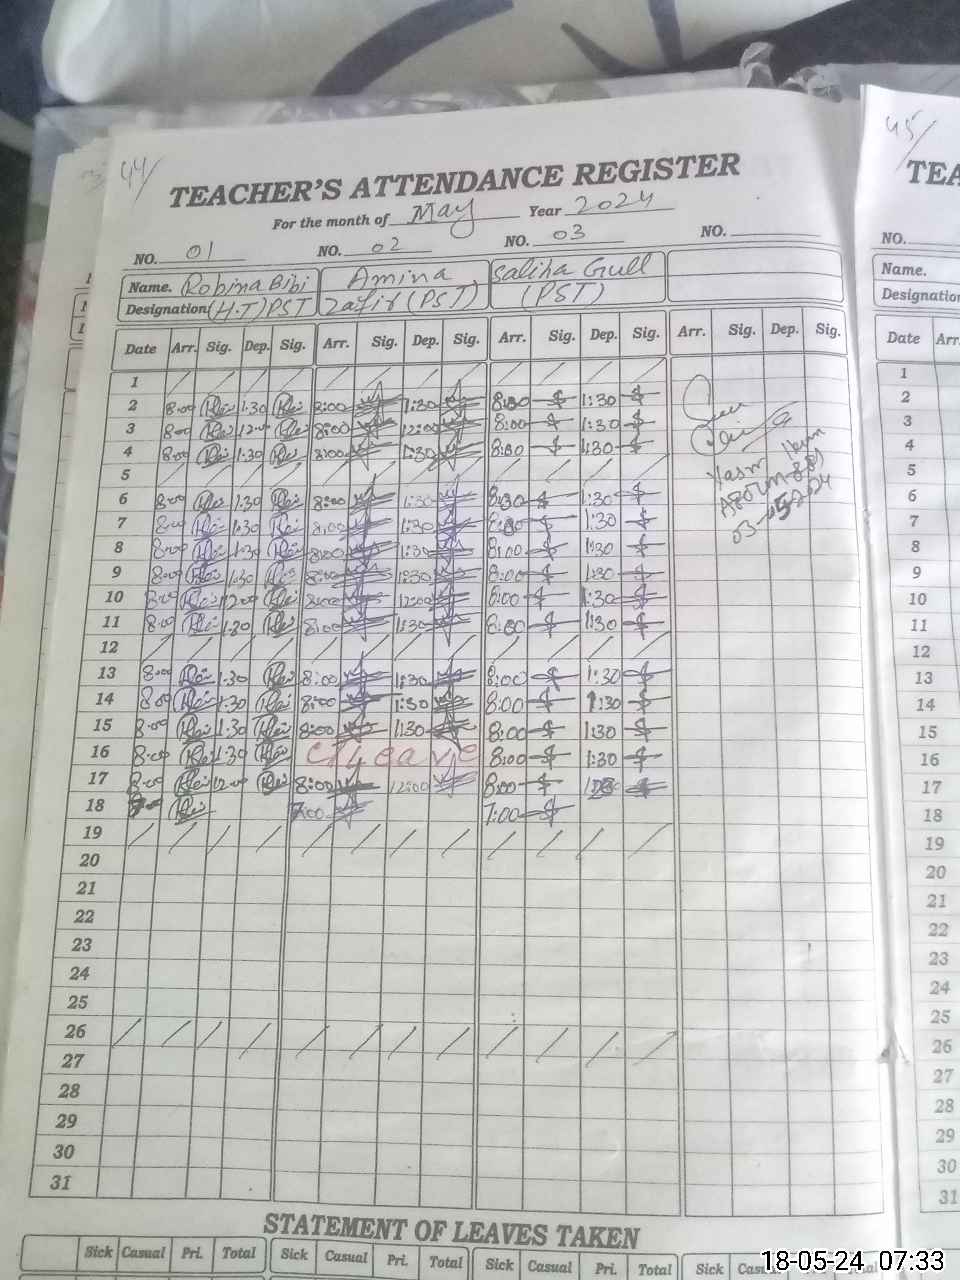 44/
TEACHER'S ATTENDANCE REGISTER
For the month of May Year 2024
NO. 01 NO. 02 NO. 03 NO.
Name. Robina Bibi Amina Saliha Gull
Designation (H.T) PST Zafir (PST) (PST)
Date Arr. Sig. Dep. Sig. Arr. Sig. Dep. Sig. Arr. Sig. Dep. Sig. Arr. Sig. Dep. Sig.
1
2 8:00 1:30 8:00 1:30 8:00 1:30
3 8:00 12:00 8:00 12:00 8:00 1:30
4 8:00 1:30 8:00 1:30 8:00 1:30
5
6 8:00 1:30 8:00 1:30 8:30 1:30
7 8:00 1:30 8:00 1:30 8:00 1:30
8 8:00 1:30 8:00 1:30 8:00 1:30
9 8:00 1:30 8:00 1:30 8:00 1:30
10 8:00 12:00 8:00 12:00 8:00 1:30
11 8:00 1:30 8:00 1:30 8:00 1:30
12
13 8:00 1:30 8:00 1:30 8:00 1:30
14 8:00 1:30 8:00 1:30 8:00 1:30
15 8:00 1:30 8:00 1:30 8:00 1:30
16 8:00 1:30 C/Leave 8:00 1:30
17 8:00 12:00 8:00 12:00 8:00
18 7:00 7:00
19
20
21
22
23
24
25
26
27
28
29
30
31
03-05-2024
STATEMENT OF LEAVES TAKEN
Sick Casual Pri. Total Sick Casual Pri. Total Sick Casual Pri. Total Sick Casual
45/
TEA
NO.
Name.
Designation
Date Arr.
1
2
3
4
5
6
7
8
9
10
11
12
13
14
15
16
17
18
19
20
21
22
23
24
25
26
27
28
29
30
31
18-05-24 07:33